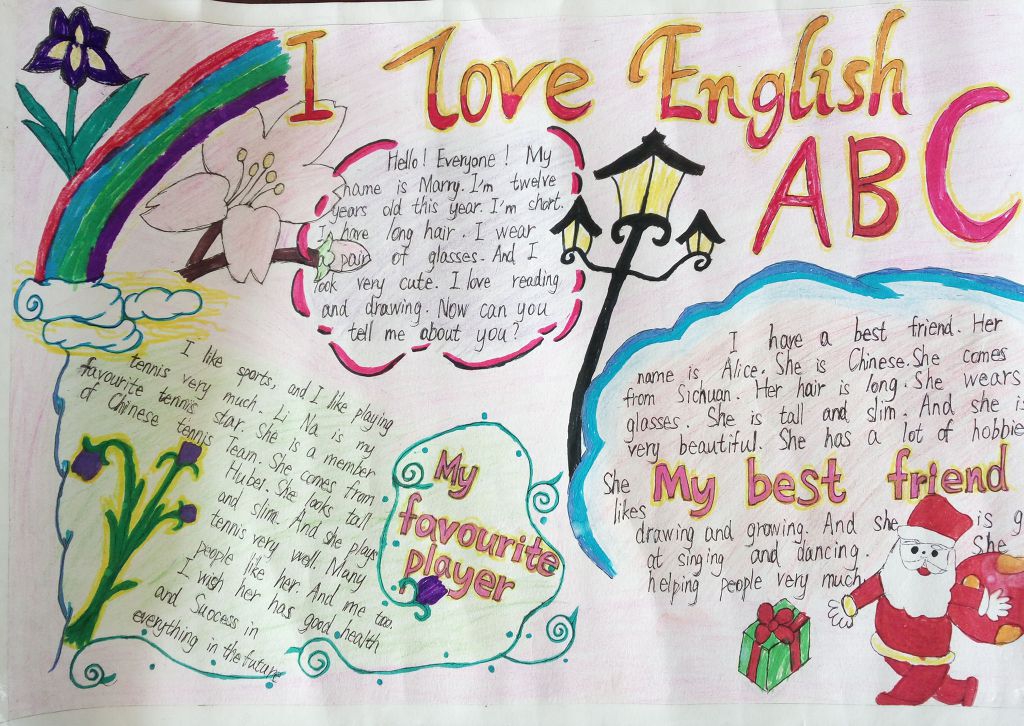 I Love English
ABC
Hello! Everyone! My
name is Marry. I'm twelve
years old this year. I'm short.
I have long hair. I wear
a pair of glasses. And I
look very cute. I love reading
and drawing. Now can you
tell me about you?
I like sports, and I like playing
tennis very much. Li Na is my
favourite tennis star. She is a member
of Chinese tennis Team. She comes from
Hubei. She looks tall
and slim. And she plays
tennis very well. Many
people like her. And me too
I wish her has good health
and Success in
everything in the future
My
favourite
player
I have a best friend. Her
name is Alice. She is Chinese. She comes
from Sichuan. Her hair is long. She wears
glasses. She is tall and slim. And she is
very beautiful. She has a lot of hobbie
She
likes
My best friend
drawing and growing. And she is g
at singing and dancing. She
helping people very much